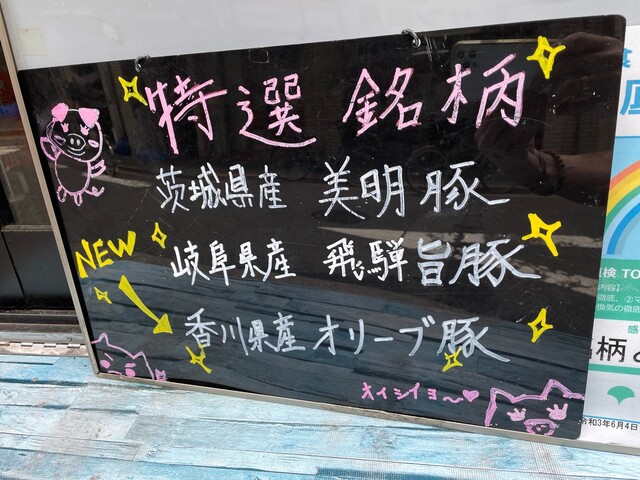 特選 銘柄
茨城県産 美明豚
NEW
岐阜県産 飛騨旨豚
香川県産 オリーブ豚
オイシイヨ〜♡
検 TO
内容】
徹底、②マ
換気の徹底
感
柄
令和3年6月4日